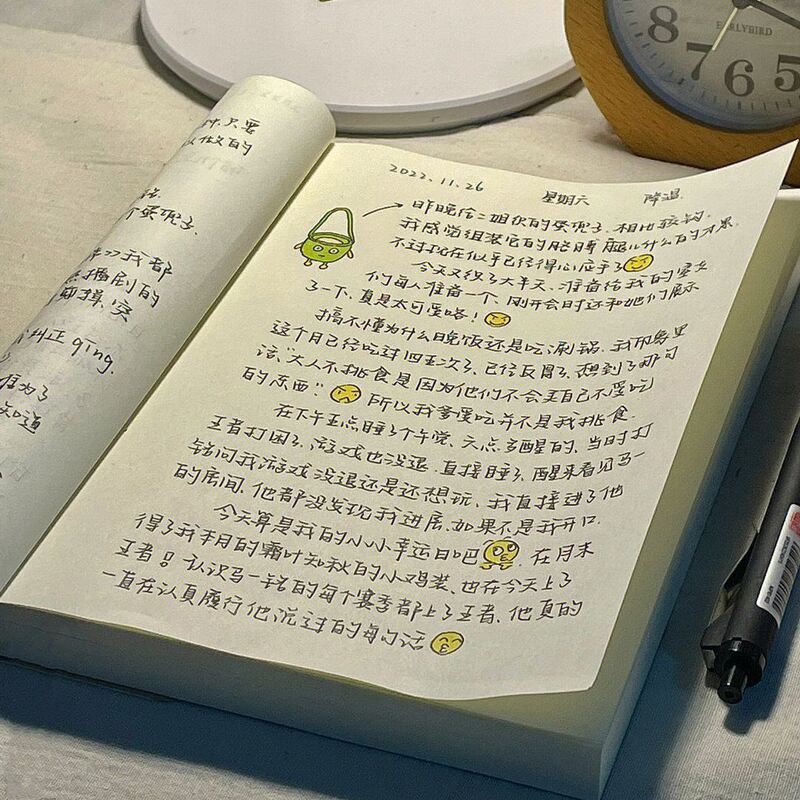 只要
做的
个蛋呢子
我都
播剧的
纠正qīng.
知道
2022.11.26 星期六 降温
昨晚给二姐织的蛋呢子,相比较钩,
我感觉组装它的胳膊腿儿什么的才麻
不过现在似乎已经得心应手了
今天又织了大半天、准备给我的室友
们每人准备一个,刚开会时还和她们展示
了一下,真是太可爱咯!
搞不懂为什么晚饭还是吃涮锅,我印象里
这个月已经吃过四五次了、已经反胃了,想到了那句
话“大人不挑食是因为他们不会买自己不爱吃
的东西”所以我爹爱吃并不是我挑食.
在下午五点睡了个午觉、六点多醒的,当时打
王者打困了,游戏也没退,直接睡了,醒来看见马一
铭问我游戏没退还是还想玩,我直接进了他
的房间,他都没发现我进房、如果不是我开口.
今天算是我的小小幸运日吧 在月末
得了我本月的霜叶知秋的小鸡装、也在今天上了
王者!!认识马一铭的每个赛季都上了王者、他真的
一直在认真履行他说过的每句话
EARLYBIRD
8 7 6 5